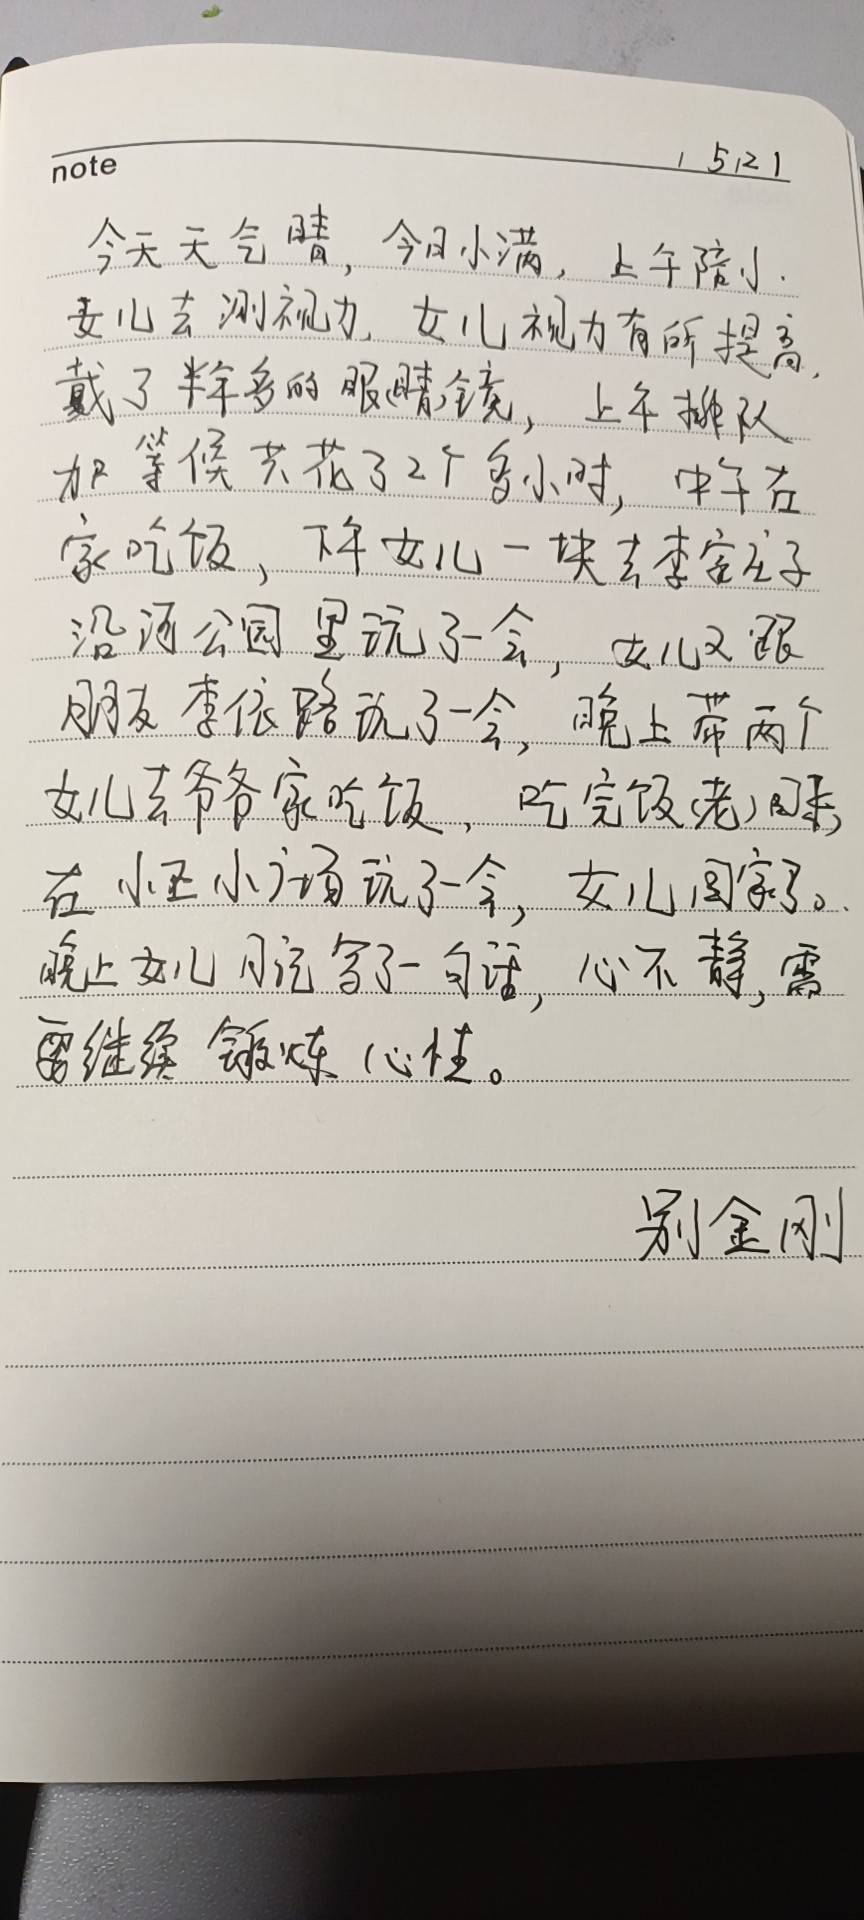 note
5.21
今天天气晴，今日小满，上午陪小
女儿去测视力，女儿视力有所提高，
戴了半年多的眼睛镜，上午排队
加等候共花了2个多小时，中午在
家吃饭，下午女儿一块去李家庄子
沿河公园里玩了一会，女儿又跟
朋友李依路玩了一会，晚上带两个
女儿去爷爷家吃饭，吃完饭(老)回来，
在小区小广场玩了一会，女儿回家了。
晚上女儿日记写了一句话，心不静，需
要继续锻炼心性。
别金刚